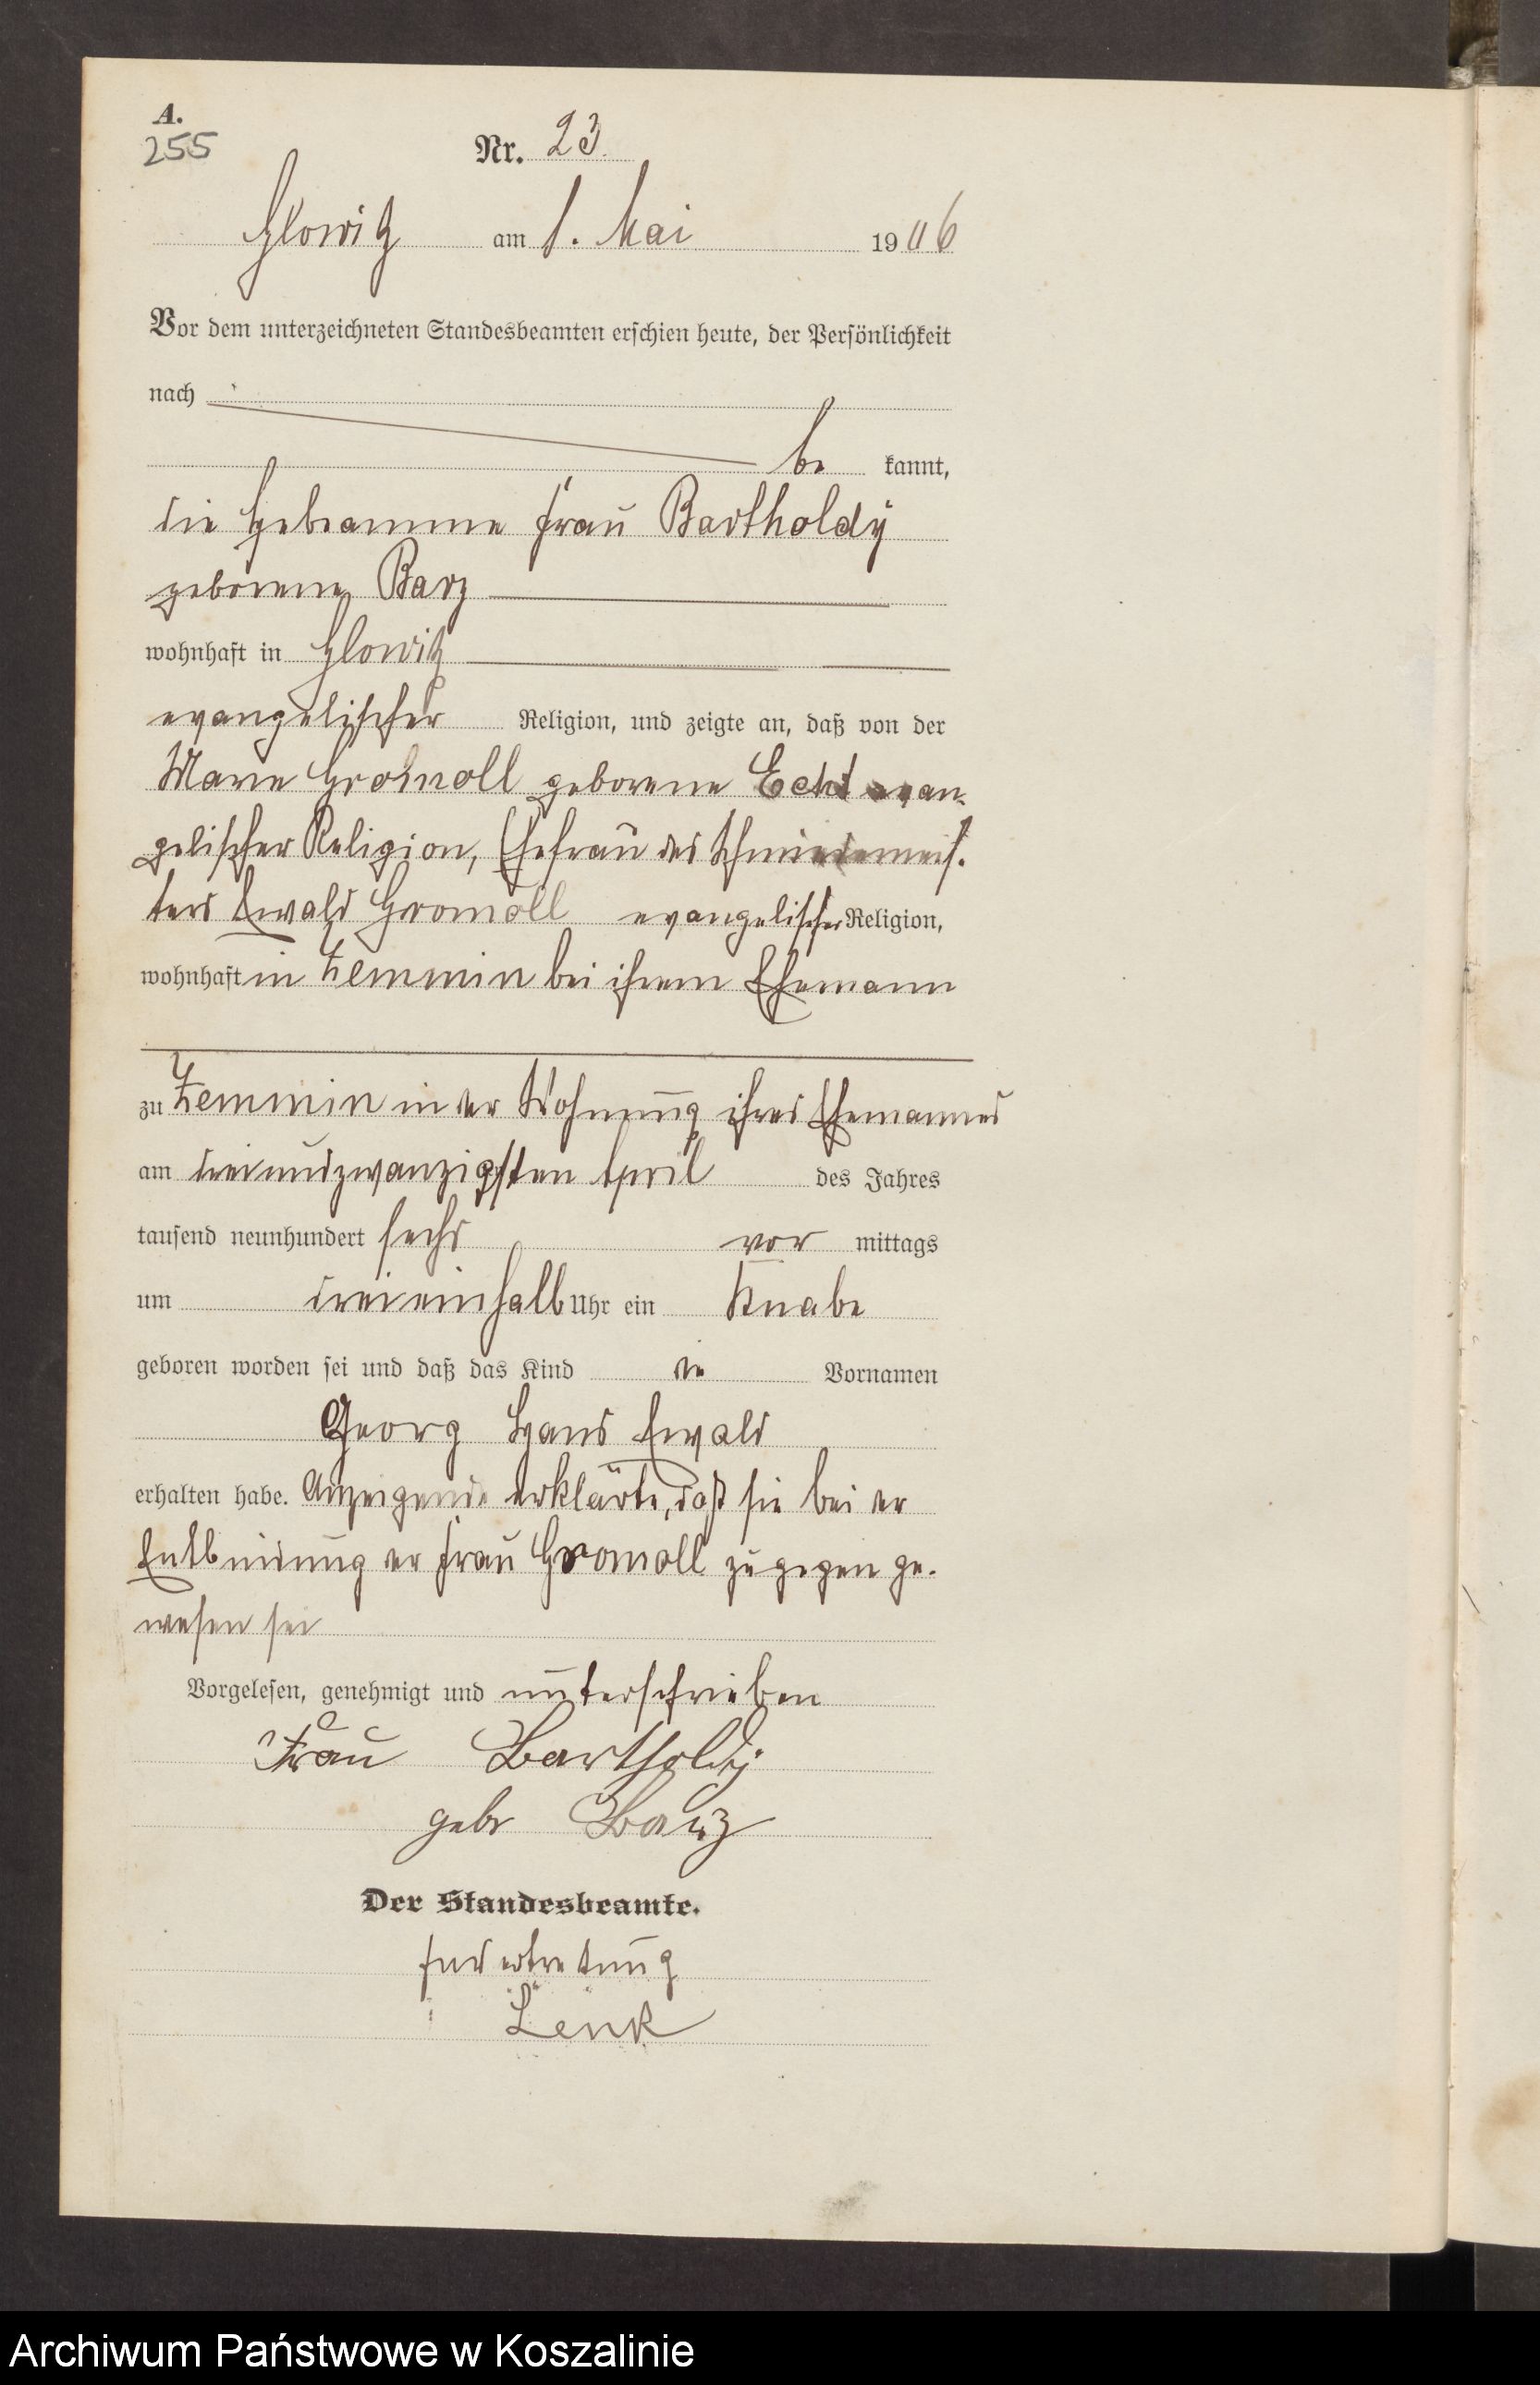 A.
255
Nr. 23.
Glowitz am 1. Mai 1906
Vor dem unterzeichneten Standesbeamten erschien heute, der Persönlichkeit
nach
be kannt,
die Hebeamme Frau Bartholdy
geborene Barz
wohnhaft in Glowitz
evangelischer Religion, und zeigte an, daß von der
Marie Gromoll geborene Echt evan-
gelischer Religion, Ehefrau des Schmiedemeis-
ters Ewald Gromoll evangelischer Religion,
wohnhaft in Zemmin bei ihrem Ehemann
zu Zemmin in der Wohnung ihres Ehemannes
am dreiundzwanzigsten April des Jahres
tausend neunhundert sechs vor mittags
um dreieinhalb Uhr ein Knabe
geboren worden sei und daß das Kind die Vornamen
Georg Hans Ewald
erhalten habe. Anzeigende erklärte, daß sie bei der
Entbindung der Frau Gromoll zugegen ge-
wesen sei
Vorgelesen, genehmigt und unterschrieben
Frau Bartholdy
gebr Barz
Der Standesbeamte.
In Vertretung
Lenk
Archiwum Państwowe w Koszalinie